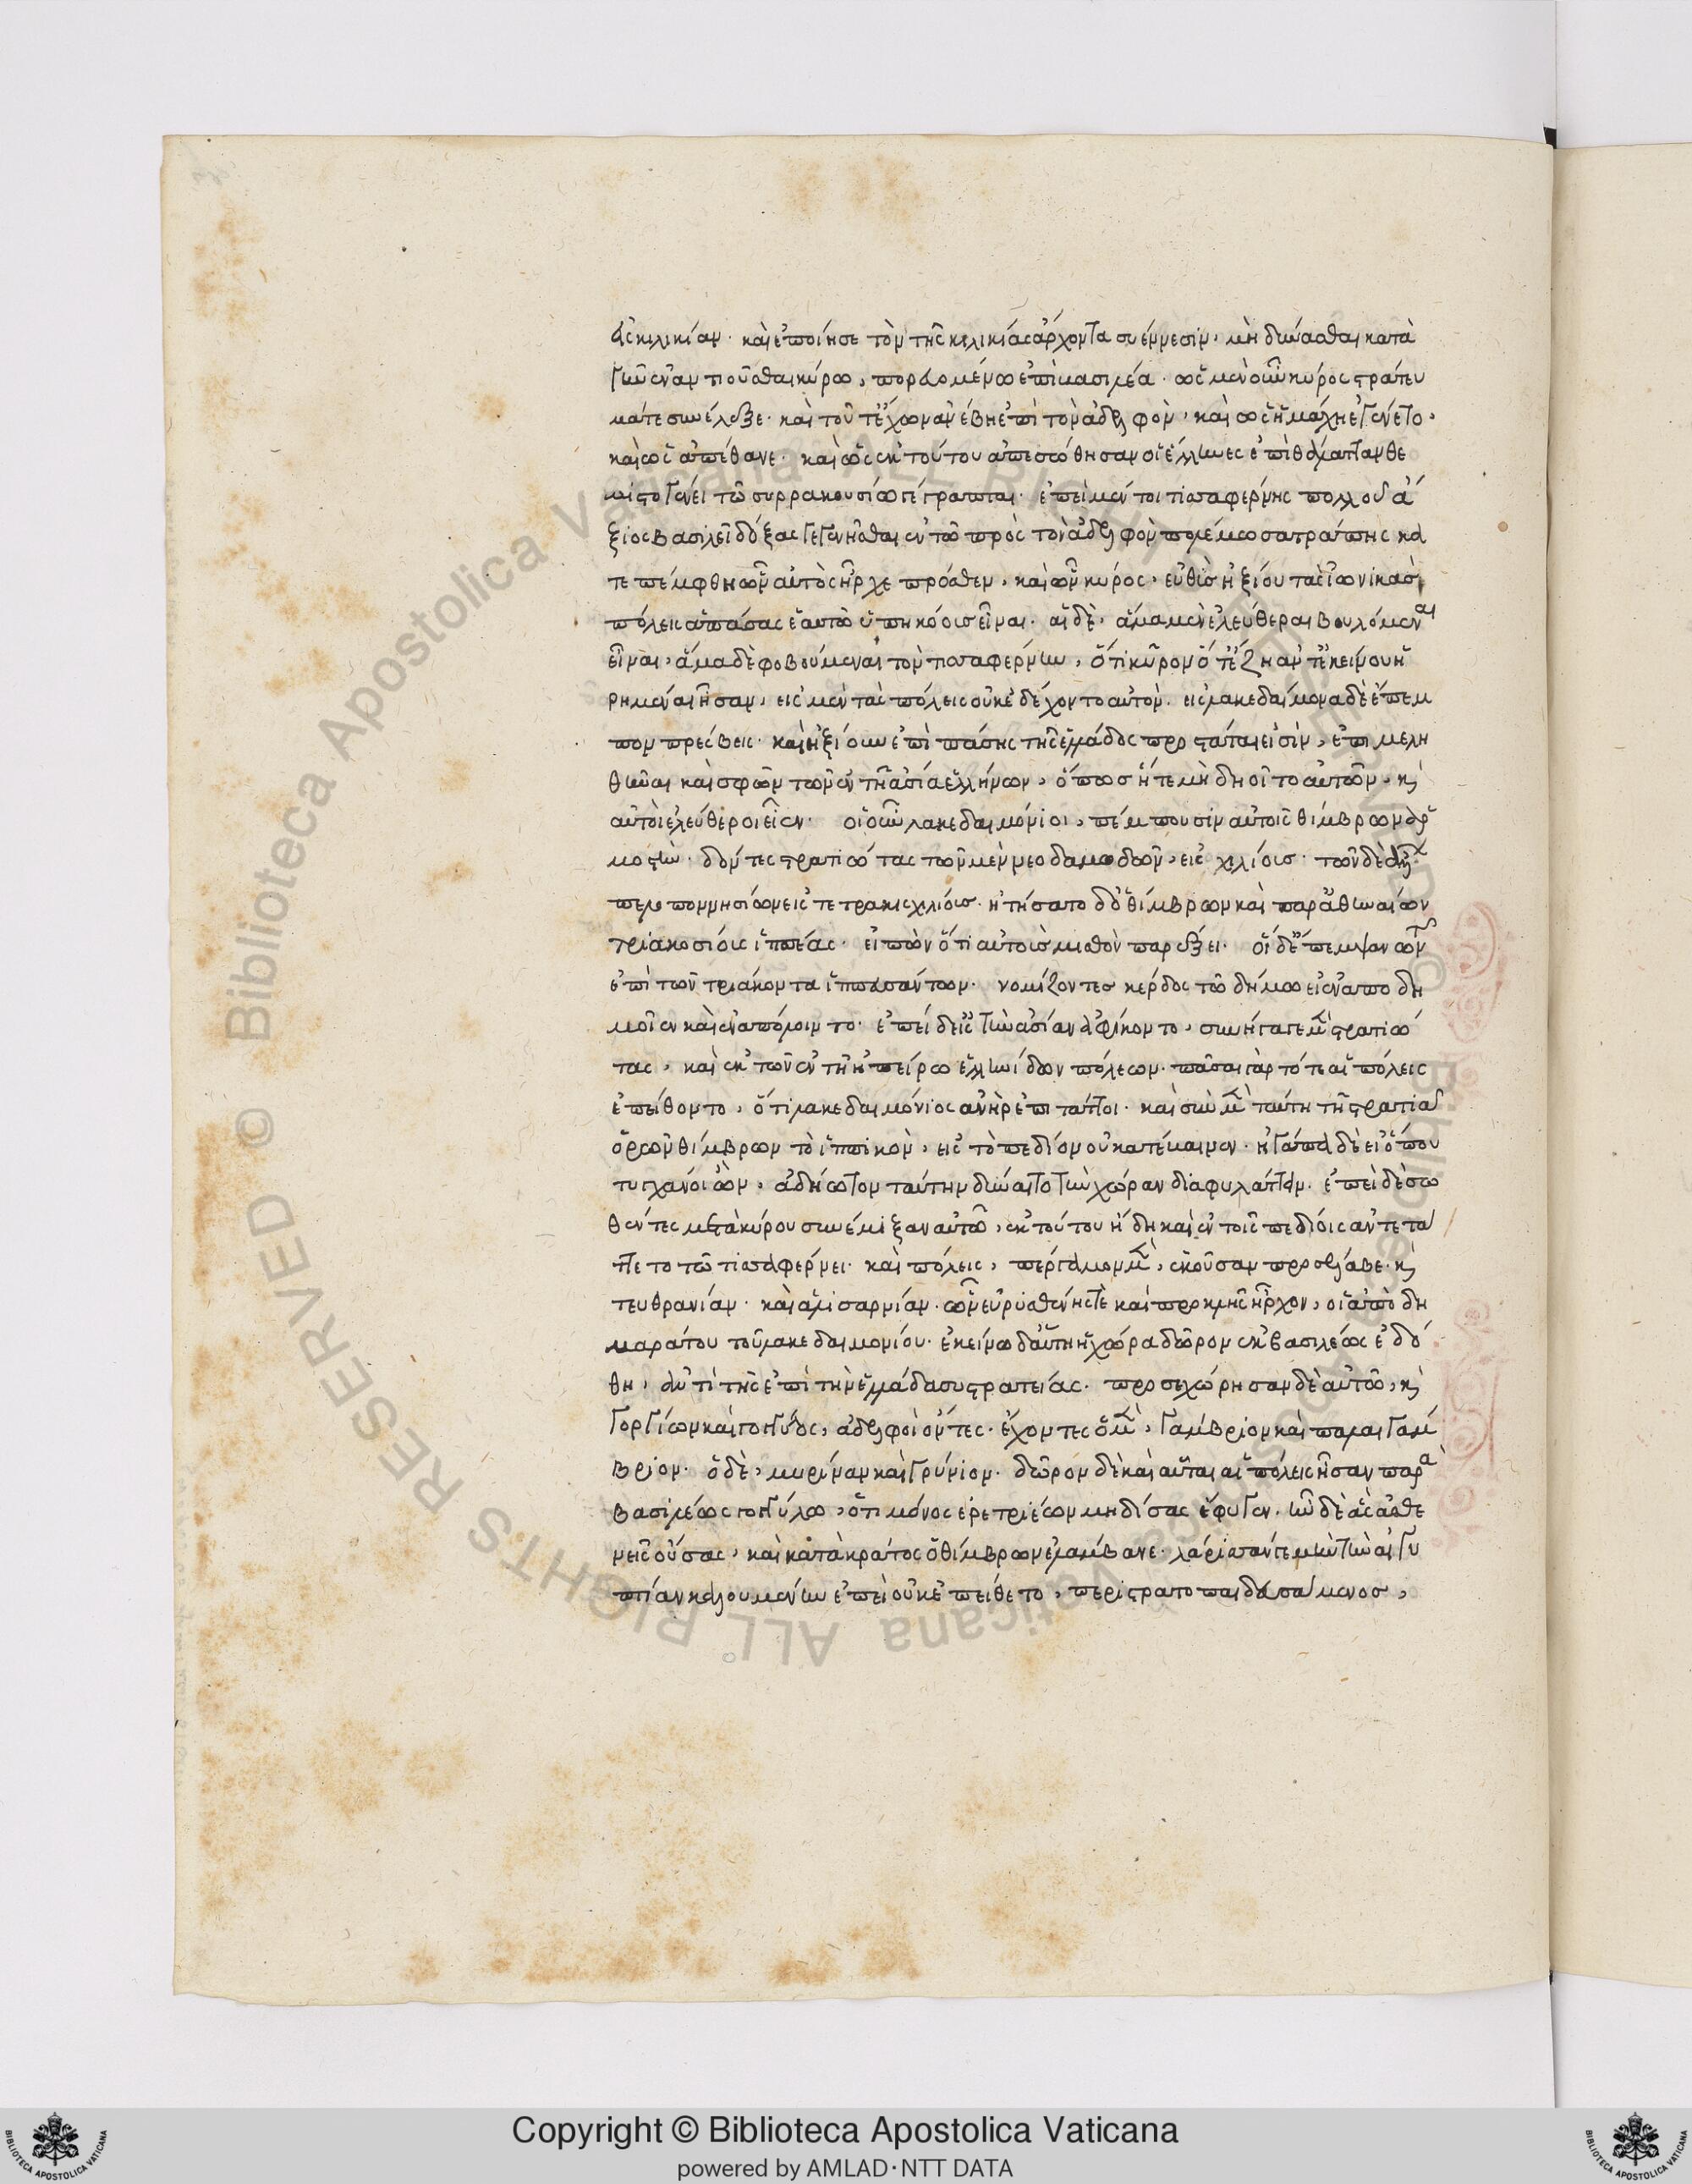 εἰς κιλικίαν· καὶ ἐποίησε τὸν τῆς κιλικίας ἄρχοντα συέννεσιν, μὴ δύνασθαι κατὰ
γῆν ἐναντιοῦσθαι κύρῳ, πορευομένῳ ἐπὶ βασιλέα· ὡς μὲν οὖν κύρος στράτευ
μά τε συνέλεξε· καὶ τοῦτ' ἔχων ἀνέβη ἐπὶ τὸν ἀδελφὸν, καὶ ὡς ἡ μάχη ἐγένετο,
καὶ ὡς ἀπέθανε· καὶ ὡς ἐκ τούτου ἀπεσώθησαν οἱ ἕλληνες ἐπὶ θάλατταν θε
μιστογένει τῶ συρρακουσίω γέγραπται· ἐπεὶ μέντοι τισσαφέρνης πολλοῦ ἄ
ξιος βασιλεῖ δόξας γεγενῆσθαι ἐν τῶ πρὸς τὸν ἀδελφὸν πολέμω σατράπης κα
τεπέμφθη ὧν αὐτὸς ἦρχε πρόσθεν, καὶ ὧν κύρος, εὐθὺς ἠξίου τὰς ἰωνικὰς
πόλεις ἁπάσας ἑαυτῶ ὑπηκόους εἶναι· αἱ δὲ, ἅμα μὲν ἐλεύθεραι βουλόμεναι
εἶναι, ἅμα δὲ φοβούμεναι τὸν τισσαφέρνην, ὅτι κῦρον ὅτ' ἔζη ἀντ' ἐκείνου ᾑ
ρημέναι ἦσαν, εἰς μὲν τὰς πόλεις οὐκ ἐδέχοντο αὐτὸν· εἰς λακεδαίμονα δὲ ἔπεμ
πον πρέσβεις· καὶ ἠξίουν ἐπεὶ πάσης τῆς ἑλλάδος προστάται εἰσὶν, ἐπιμελη
θῆναι καὶ σφῶν τῶν ἐν τῆ ἀσία ἑλλήνων, ὅπως ἥ τε μὴ δηοῖτο αὐτῶν, κ
αὐτοὶ ἐλεύθεροι εἶεν· οἱ οὖν λακεδαιμόνιοι, πέμπουσιν αὐτοῖς θίμβρωνα ἁρ
μοστὴν· δόντες στρατιώτας τῶν μὲν νεοδαμωδῶν, εἰς χιλίους· τῶν δὲ ἄλλων
πελοποννησίων εἰς τετρακισχιλίους· ἠτήσατο δ' ὁ θίμβρων καὶ παρ' ἀθηναίων
τριακοσίους ἱππέας· εἰπὼν ὅτι αὐτοὺς μισθὸν παρέξει· οἱ δ' ἔπεμψαν τῶν
ἐπὶ τῶν τριάκοντα ἱππευσάντων· νομίζοντες κέρδος τῶ δήμω εἰ ἐναποδη
μοῖεν καὶ ἐναπόλοιντο· ἐπεὶ δ' εἰς τὴν ἀσίαν ἀφίκοντο, συνήγαγε μὲν στρατιώ
τας, καὶ ἐκ τῶν ἐν τῆ ἠπείρω ἑλληνίδων πόλεων· πᾶσαι γὰρ τότε αἱ πόλεις
ἐπείθοντο, ὅτι λακεδαιμόνιος ἀνὴρ ἐπιτάττοι· καὶ σὺν μὲν ταύτη τῆ στρατιᾶ
ὁρῶν θίμβρων τὸ ἱππικὸν, εἰς τὸ πεδίον οὐ κατέβαινεν· ἠγάπα δὲ εἰ ὅπου
τυγχάνοι ὢν, ἀδήωτον ταύτην δύναιτο τὴν χώραν διαφυλάττειν· ἐπεὶ δὲ σω
θέντες μετὰ κύρου συνέμιξαν αὐτῶ, ἐκ τούτου ἤδη καὶ ἐν τοῖς πεδίοις ἀντετά
ττετο τῶ τισσαφέρνει· καὶ πόλεις, πέργαμον μὲν, ἑκοῦσαν προσέλαβε· κ
τευθρανίαν· καὶ ἁλισαρνίαν· ὧν εὐρυσθένης τε καὶ προκλῆς ἦρχον, οἱ ἀπὸ δη
μαράτου τοῦ λακεδαιμονίου· ἐκείνω δ' αὕτη ἡ χώρα δῶρον ἐκ βασιλέως ἐδό
θη, ἀντὶ τῆς ἐπὶ τὴν ἑλλάδα συστρατείας· προσεχώρησαν δὲ αὐτῶ, κ
γοργίων καὶ γογγύλος, ἀδελφοὶ ὄντες· ἔχοντες ὁ μὲν, γάμβριον καὶ παλαιγάμ
βριον· ὁ δὲ, μυρίναν καὶ γρύνιον· δῶρον δὲ καὶ αὗται αἱ πόλεις ἦσαν παρὰ
βασιλέως γογγύλω, ὅτι μόνος ἐρετριέων μηδίσας ἔφυγεν· ἦν δὲ ἃς ἀσθε
νεῖς οὔσας, καὶ κατὰ κράτος ὁ θίμβρων ἐλάμβανε· λάρισσάν γε μὴν τὴν αἰγυ
πτίαν καλουμένην ἐπεὶ οὐκ ἐπείθετο, περιστρατοπεδευσάμενος,
Copyright © Biblioteca Apostolica Vaticana
powered by AMLAD·NTT DATA